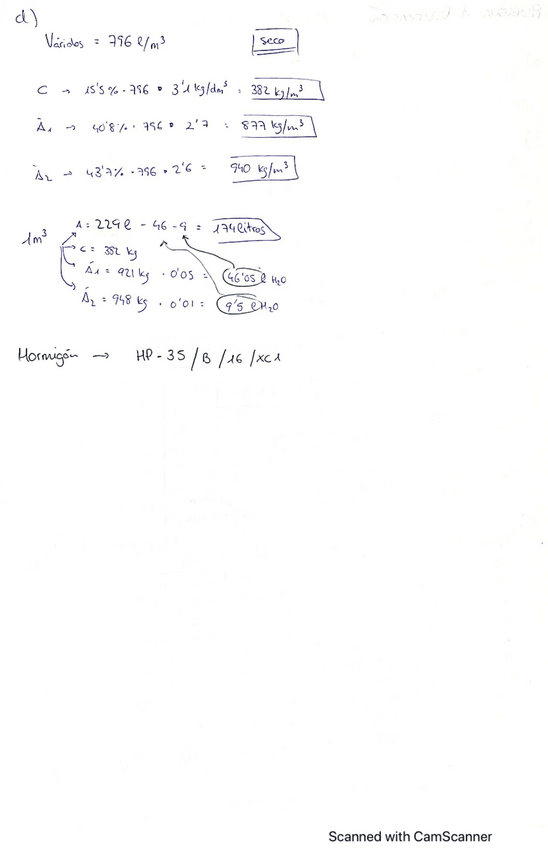 d)
Váridos = 796 l/m³ seco
C → 15'5% · 796 · 3'1 kg/dm³ = 382 kg/m³
Á1 → 40'8% · 796 · 2'7 = 877 kg/m³
Á2 → 43'7% · 796 · 2'6 = 940 kg/m³
1m³
A = 229 l - 46 - 9 = 174 litros
C = 382 kg
Á1 = 921 kg · 0'05 = 46'05 l H2O
Á2 = 948 kg · 0'01 = 9'5 l H2O
Hormigón → HP - 35 / B / 16 / XC1
Scanned with CamScanner